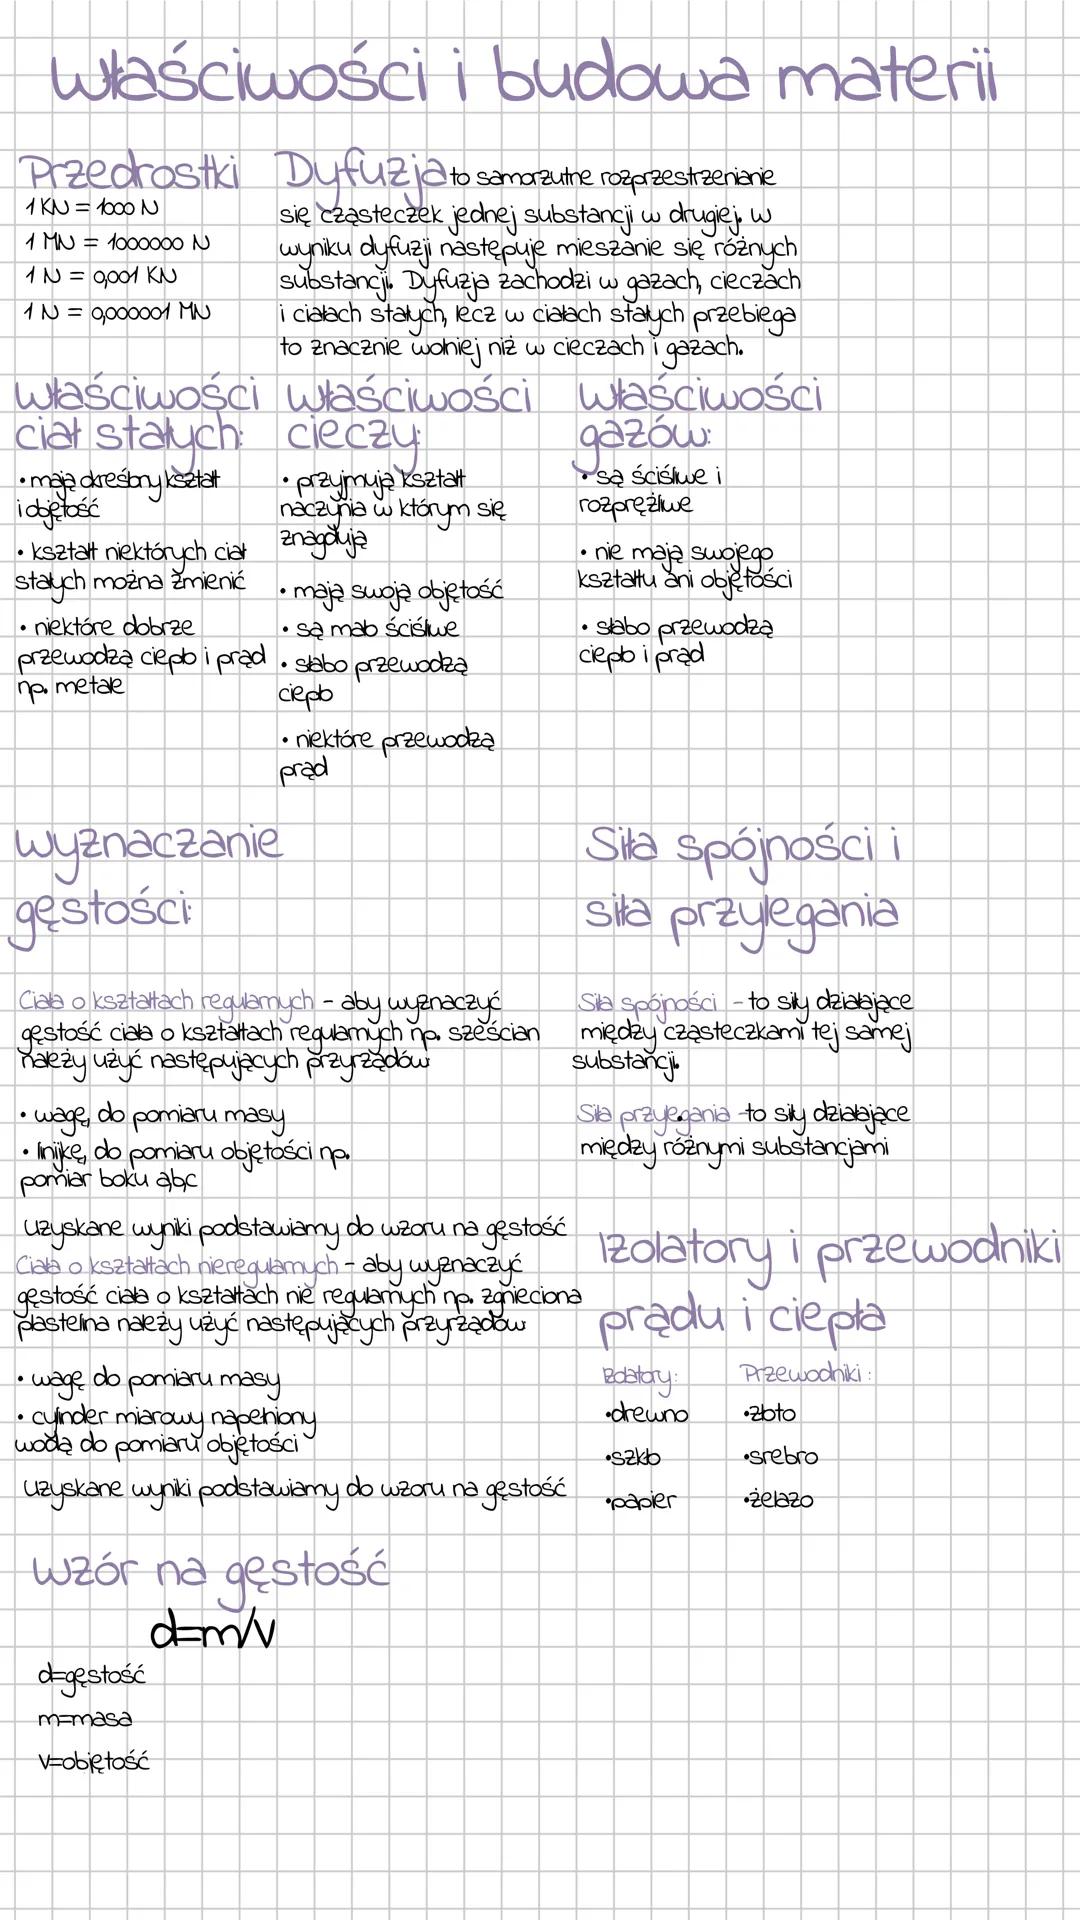 właściwości i budowa materii
Przedrostki
1 KN = 1000 N
1 MN = 1000000 N
1 N = 0,001 KN
1 N = 0,000001 MN
Dyfuzja to samorzutne rozprzestrzenianie
się cząsteczek jednej substancji w drugiej. w
wyniku dyfuzji następuje mieszanie się różnych
substancji. Dyfuzja zachodzi w gazach, cieczach
i ciałach stałych, lecz w ciałach stałych przebiega
to znacznie wolniej niż w cieczach i gazach.
właściwości
ciał stałych:
• mają określony kształt
i objętość
• kształt niektórych ciał
stałych można zmienić
• niektóre dobrze
przewodzą ciepło i prąd
np. metale
właściwości
cieczy:
• przyjmują kształt
naczynia w którym się
znajdują
• mają swoją objętość
• są mało ściśliwe
• słabo przewodzą
ciepło
• niektóre przewodzą
prąd
właściwości
gazów:
• są ściśliwe i
rozprężliwe
• nie mają swojego
kształtu ani objętości
• słabo przewodzą
ciepło i prąd
wyznaczanie
gęstości:
Ciała o kształtach regularnych - aby wyznaczyć
gęstość ciała o kształtach regularnych np. sześcian
należy użyć następujących przyrządów:
• wagę, do pomiaru masy
• linijkę, do pomiaru objętości np.
pomiar boku a,b,c
Uzyskane wyniki podstawiamy do wzoru na gęstość
Ciała o kształtach nieregularnych - aby wyznaczyć
gęstość ciała o kształtach nie regularnych np. zgnieciona
plastelina należy użyć następujących przyrządów:
• wagę do pomiaru masy
• cylinder miarowy napełniony
wodą do pomiaru objętości
Uzyskane wyniki podstawiamy do wzoru na gęstość
wzór na gęstość
d=m/v
d=gęstość
m=masa
v=objętość
Siła spójności i
siła przylegania
Siła spójności - to siły działające
między cząsteczkami tej samej
substancji.
Siła przylegania -to siły działające
między różnymi substancjami
Izolatory i przewodniki
prądu i ciepła
Izolatory:
•drewno
•szkło
•papier
Przewodniki:
•złoto
•srebro
•żelazo